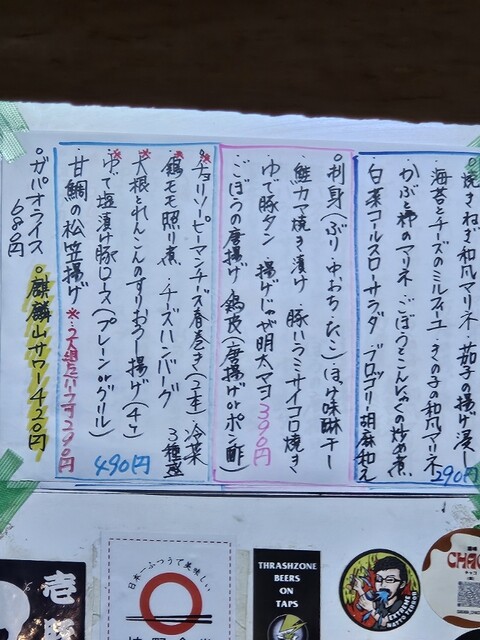 焼きねぎ和風マリネ・茄子の揚げ浸し
海苔とチーズのミルフィーユ・きのこの和風マリネ
かぶと柿のマリネ・ごぼうとこんにゃくの炒め煮
白菜コールスローサラダ・ブロッコリー胡麻和え
290円
○刺身(ぶり・中おち・たこ)ほっけ味醂干し
鮭カマ焼き漬け・豚ハラミサイコロ焼き
ゆで豚タン 揚げじゃが明太マヨ 390円
ごぼうの唐揚げ・鶏皮(唐揚げorポン酢)
チョリソーピーマンチーズ春巻き(2本)・冷菜3種盛
鶏モモ照り煮・チーズハンバーグ
大根とれんこんのすりおろし揚げ(4コ)
ゆで塩漬け豚ロース(プレーンorグリル)
490円
甘鯛の松笠揚げ
290円
○ガパオライス
680円
○麒麟山サワー420円
壱
日本一ふつうで美味しい
THRASHZONE
BEERS
ON
TAPS
EXTREME
NATTO
CHACO